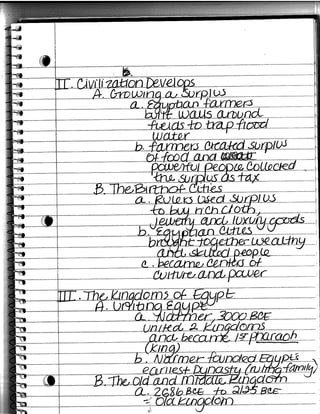 II. Civilization Develops
A. Growing a Surplus
a. Egyptian farmers
built walls around
fields to trap flood
water
b. farmers created surplus
of food and
powerful people collected
the surplus as tax
B. The Birth of Cities
a. Rulers used surplus
to buy rich cloth,
jewelry and luxury goods
b. Egyptian cities
brought together wealthy
and skilled people
c. became centers of
culture and power
III. The Kingdoms of Egypt
A. Uniting Egypt
a. Narmer, 3000 BCE
united 2 kingdoms
and became 1st pharaoh
(king)
b. Narmer founded Egypt's
earliest Dynasty (ruling family)
B. The Old and Middle Kingdom
a. 2686 BCE to 2125 BCE
= Old Kingdom